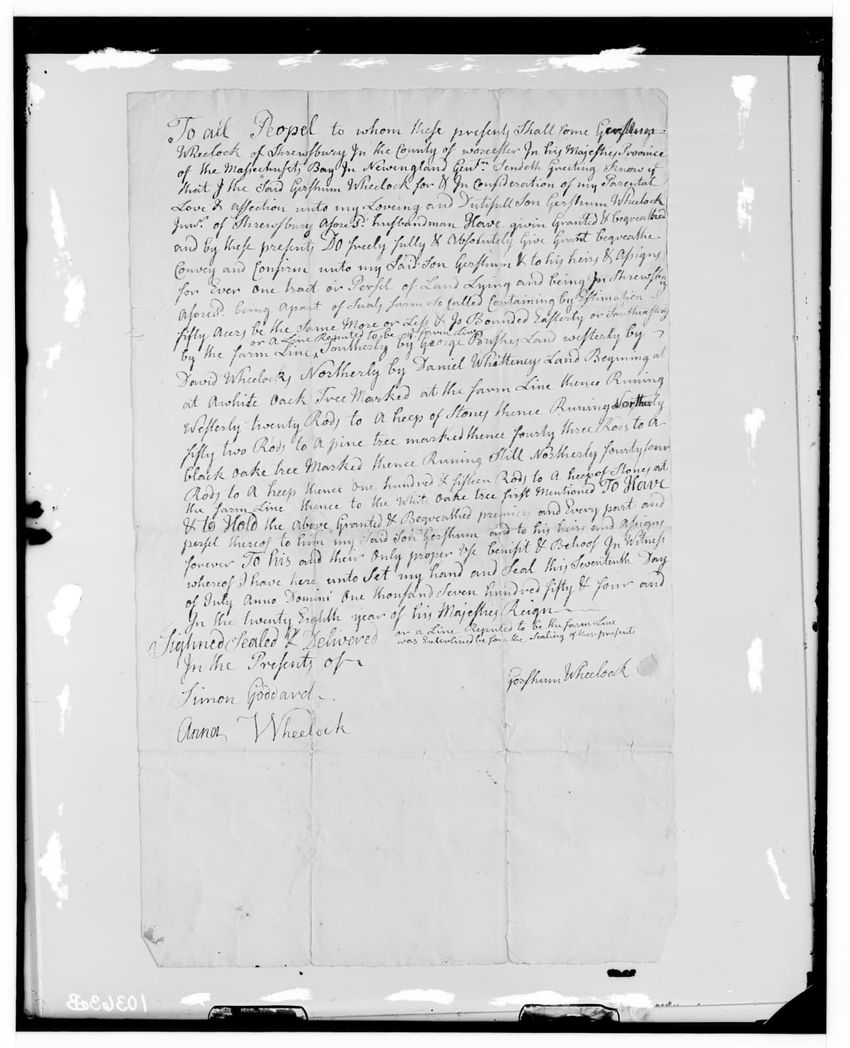 To all Peopel to whom these presents Shall Come Gershum
Wheelock of Shrewsbury In the County of worcester In his Majesties Province
of the Massechusits Bay In Newengland Gentn Sendeth Greeting Know ye
that I the Said Gershum Wheelock for & In Consideration of my Parental
Love & affection unto my Loveing and Dutifull Son Gershum Wheelock
Junr. of Shrewsbury aforesd. husbandman Have givin Granted & bequeathed
and by these presents Do freely fully & Absolutely Give Grant bequeathe
Convey and Confirm unto my Said Son Gershum & to his heirs & Asigns
for Ever one tract or Persel of Land Lying and being In Shrewsbury
aforesd being apart of farm So Called Containing by Estimation
fifty Acers be the Same More or Less & Is Bounded Easterly or Southeasterly
or a Line Reputed to be the farm Line
by the farm Line Southerly by George Bushes Land westerly by
David Wheelocks Northerly by Daniel Whitteneys Land Begining at
at Awhite oack Tree Marked at the farm Line thence Runing
Westerly twenty Rods to A heep of Stones thence Runing Northerly
fifty two Rods to A pine tree marked thence fourty three Rods to A
black oake tree Marked thence Runing Still Northerly fourty four
Rods to A heep thence one hundred & fifteen Rods to A heep of Stones at
the farm Line thence to the Whit oake tree first Mentioned To Have
& to Hold the above Granted & Bequeathed premices and Every part and
persel thereof to him my Said Son Gershum and to his heirs and Asigns
forever To his and their only proper use benifit & Behoof In Witness
whereof I have here unto Set my hand and Seal this Seventeenth Day
of July Anno Domini One thousand Seven hundred fifty & four and
In the twenty Eighth year of his Majesties Reign
Sighned Sealed & Delivered or a Line Reputed to be the farm Line
was Enterlined before the Sealing of these presents
In the Presents of
Gershum Wheelock
Simon Goddard
Anna Wheelock
10363aB